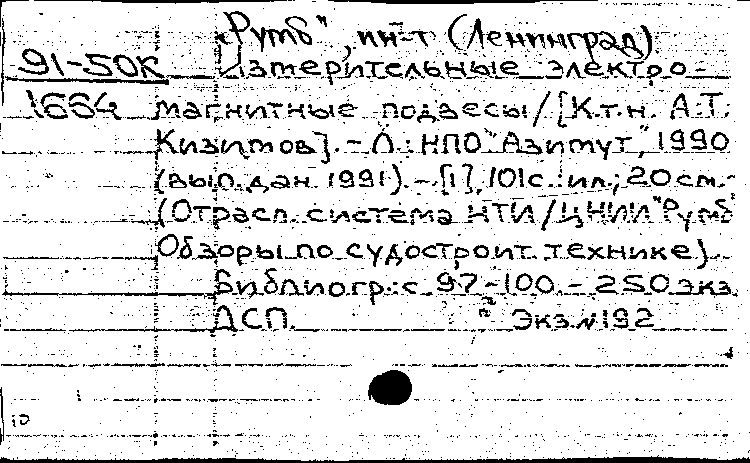 "Румб", ин-т (Ленинград)
91-50к Измерительные электро-
1664 магнитные подвесы / [К.т.н. А.Т.
Кизимов]. - Л.: НПО "Азимут", 1990
(вып. дан. 1991). - [1], 101с.: ил.; 20 см. -
(Отрасл. система НТИ / ЦНИИ "Румб"
Обзоры по судостроит. технике).
Библиогр.: с. 97-100. - 250 экз.
ДСП. Экз. № 192